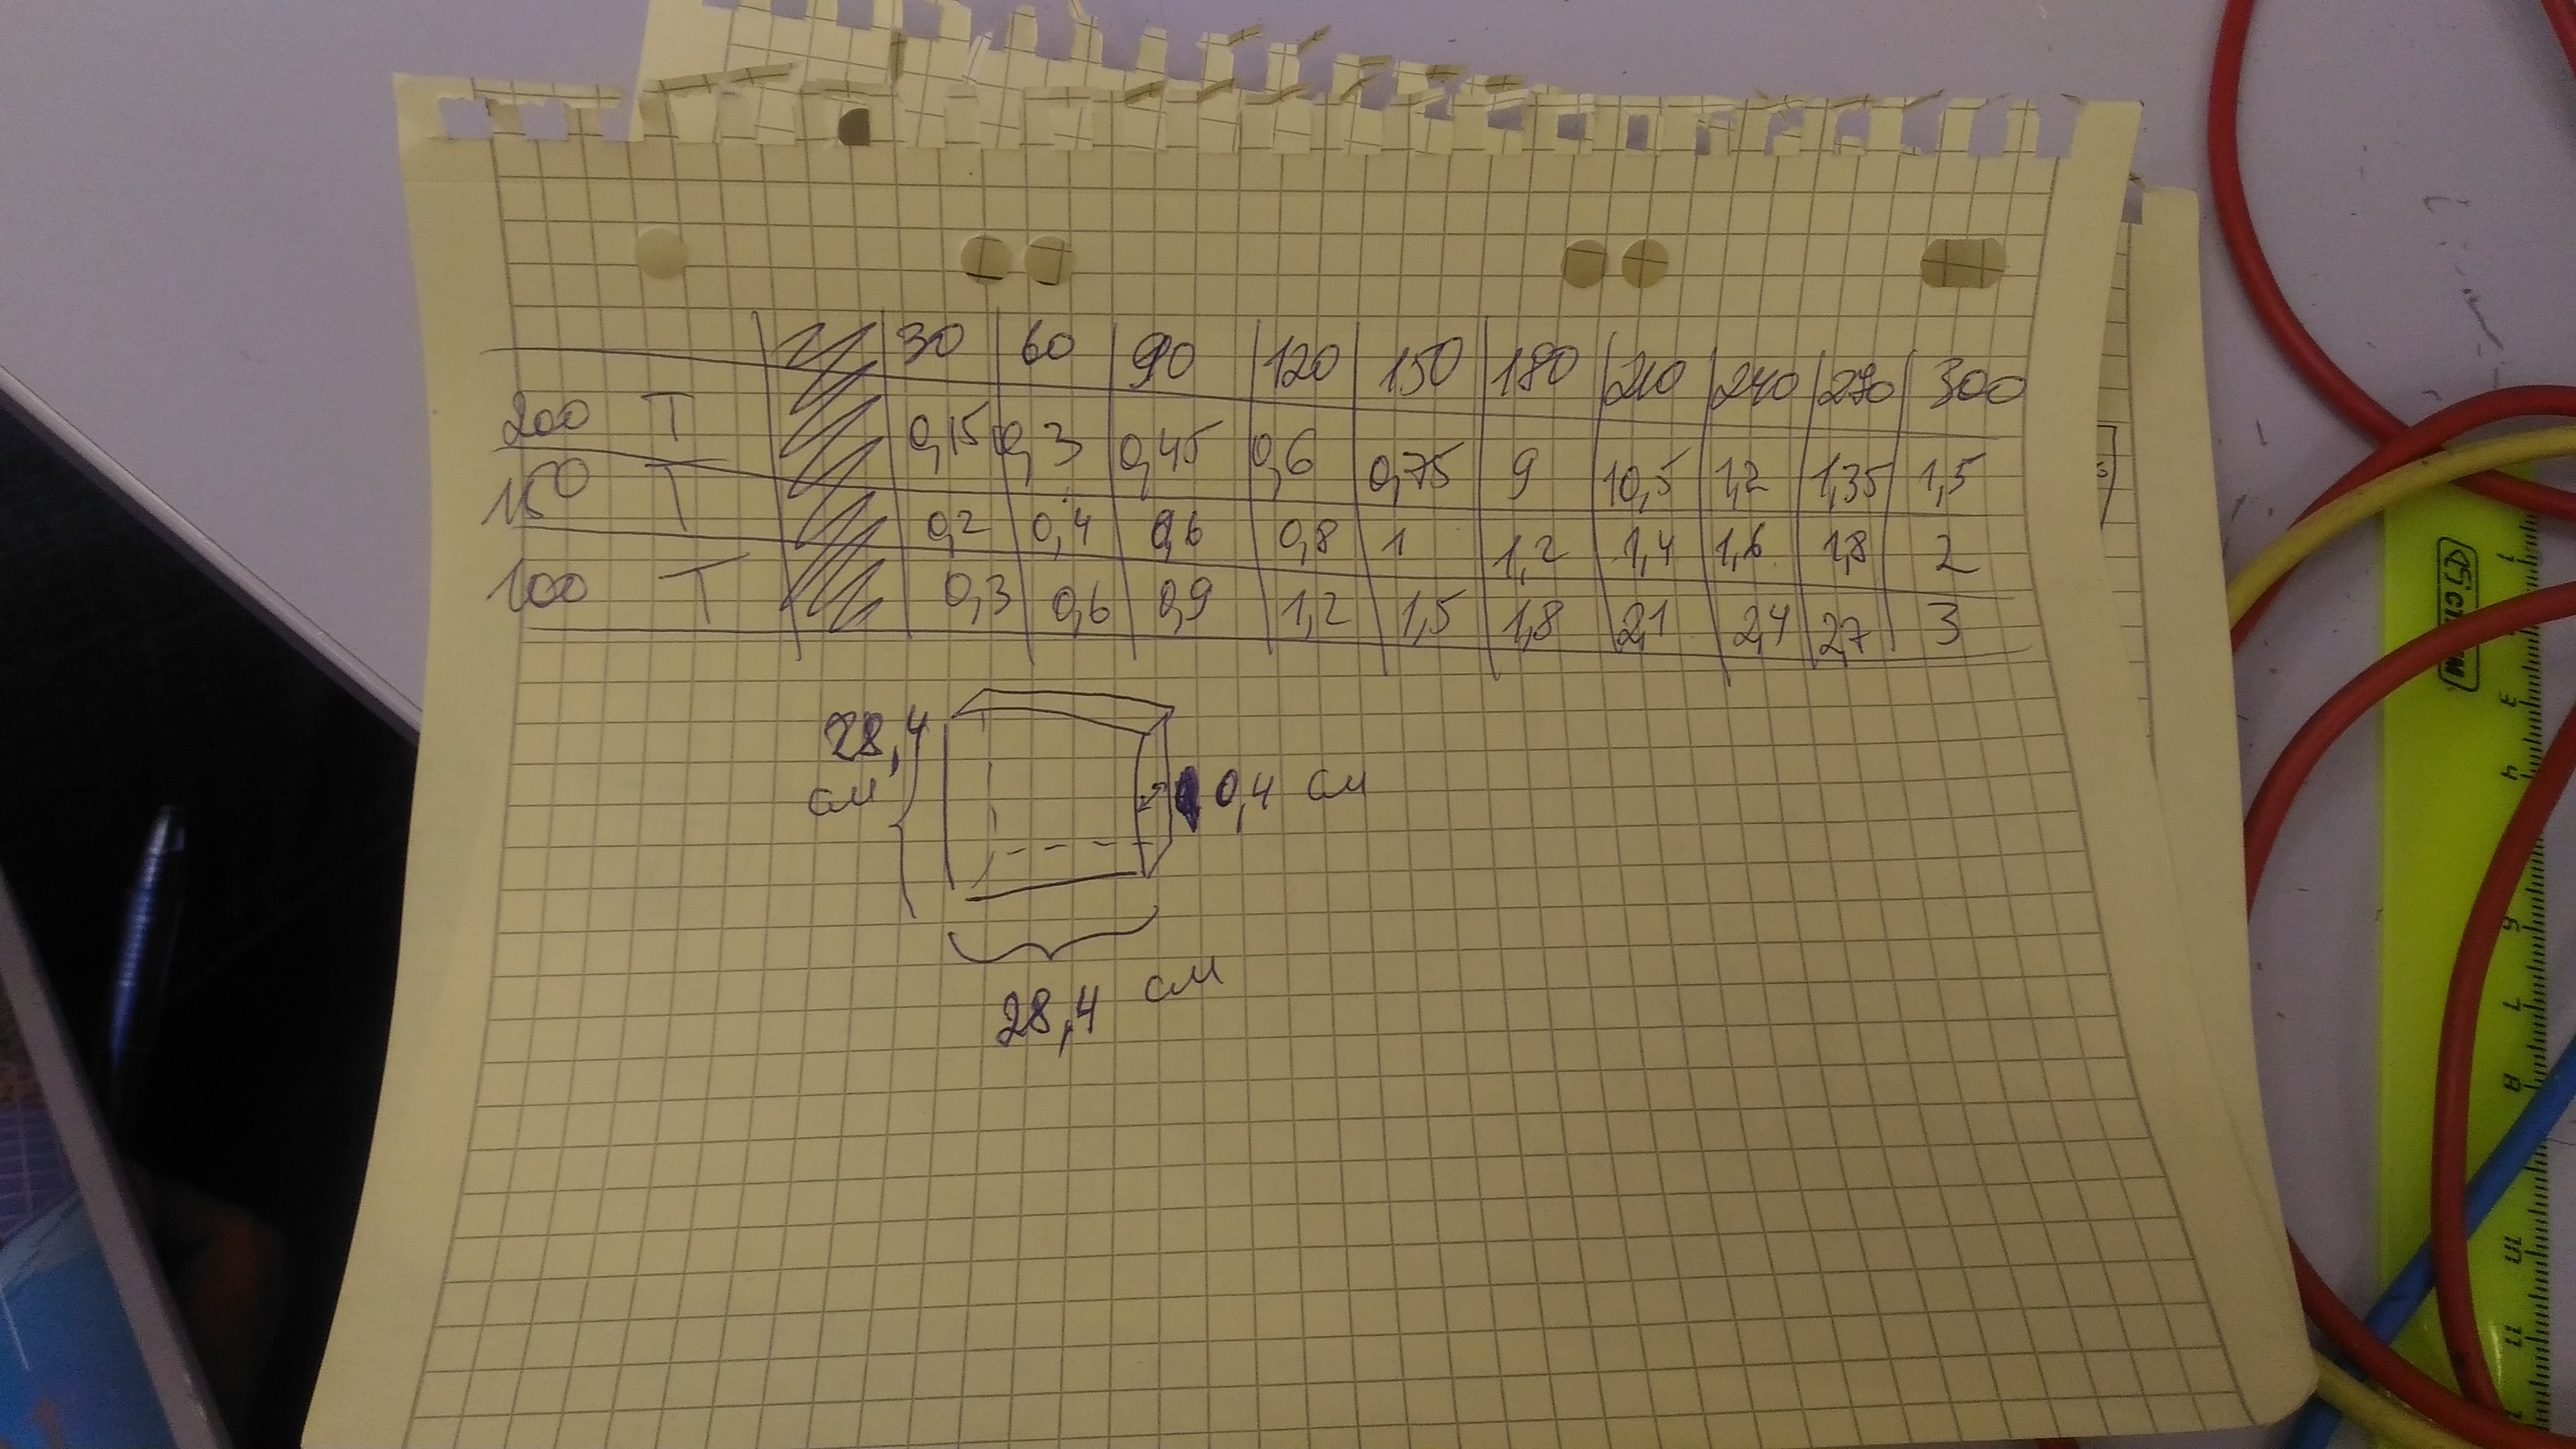 30 60 90 120 150 180 210 240 270 300
200 T 0,15 0,3 0,45 0,6 0,75 9 10,5 1,2 1,35 1,5
150 T 0,2 0,4 0,6 0,8 1 1,2 1,4 1,6 1,8 2
100 T 0,3 0,6 0,9 1,2 1,5 1,8 2,1 2,4 2,7 3
28,4
см
0,4 см
28,4 см
1
3
4
6
7
8
10
11